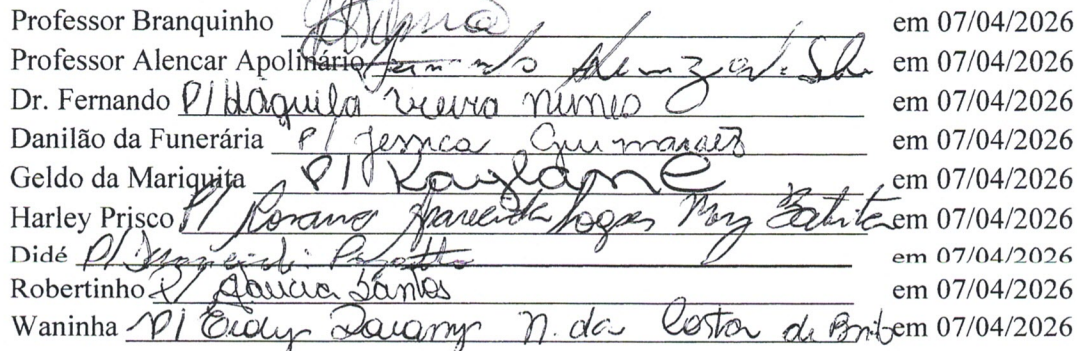 Professor Branquinho em 07/04/2026
Professor Alencar Apolinário em 07/04/2026
Dr. Fernando P/ Háquila Vieira Nunes em 07/04/2026
Danilão da Funerária P/ Jessica Guimarães em 07/04/2026
Geldo da Mariquita P/ Kaylane em 07/04/2026
Harley Prisco P/ Rosana Aparecida Lopes Batista em 07/04/2026
Didé P/ em 07/04/2026
Robertinho P/ Santos em 07/04/2026
Waninha P/ N. da Costa de Brito em 07/04/2026